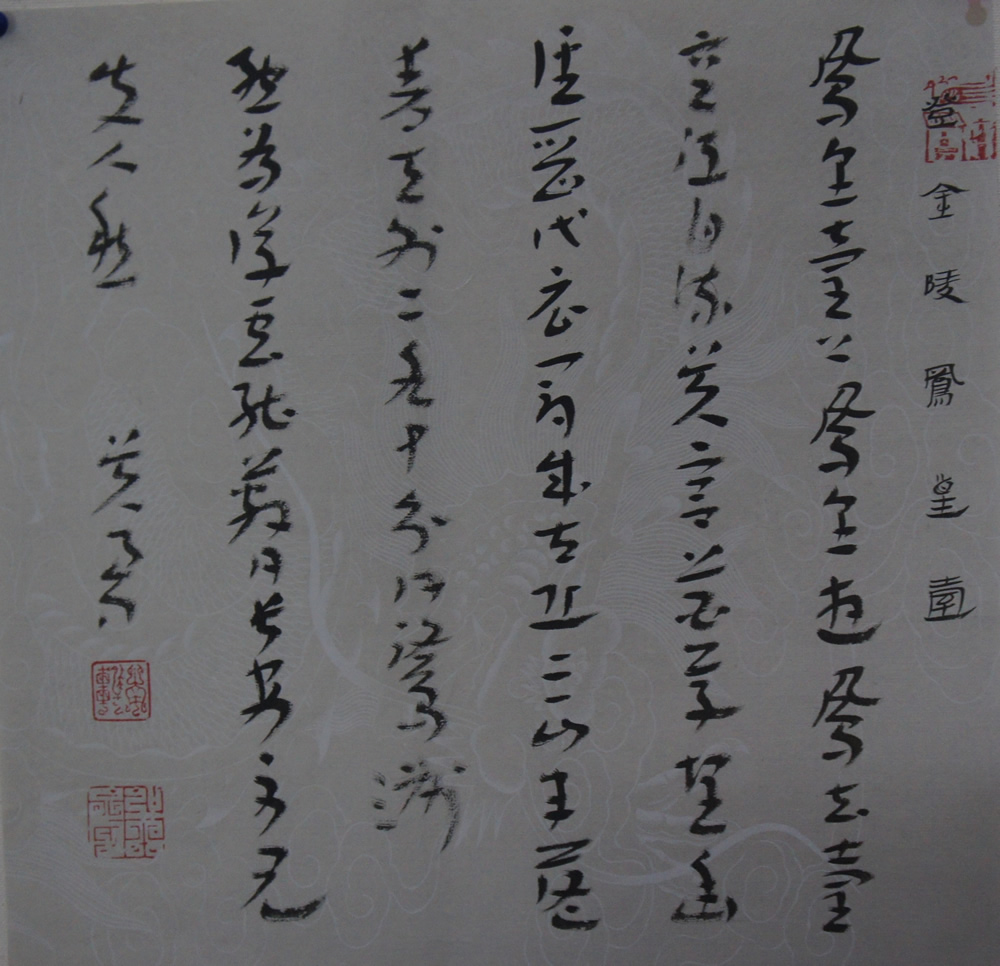 登金陵鳳皇臺
鳳皇臺上鳳皇遊鳳去臺
空江自流吳宮花草埋幽
徑晉代衣冠成古丘三山半落
青天外二水中分白鷺洲
總為浮雲能蔽日長安不見
使人愁